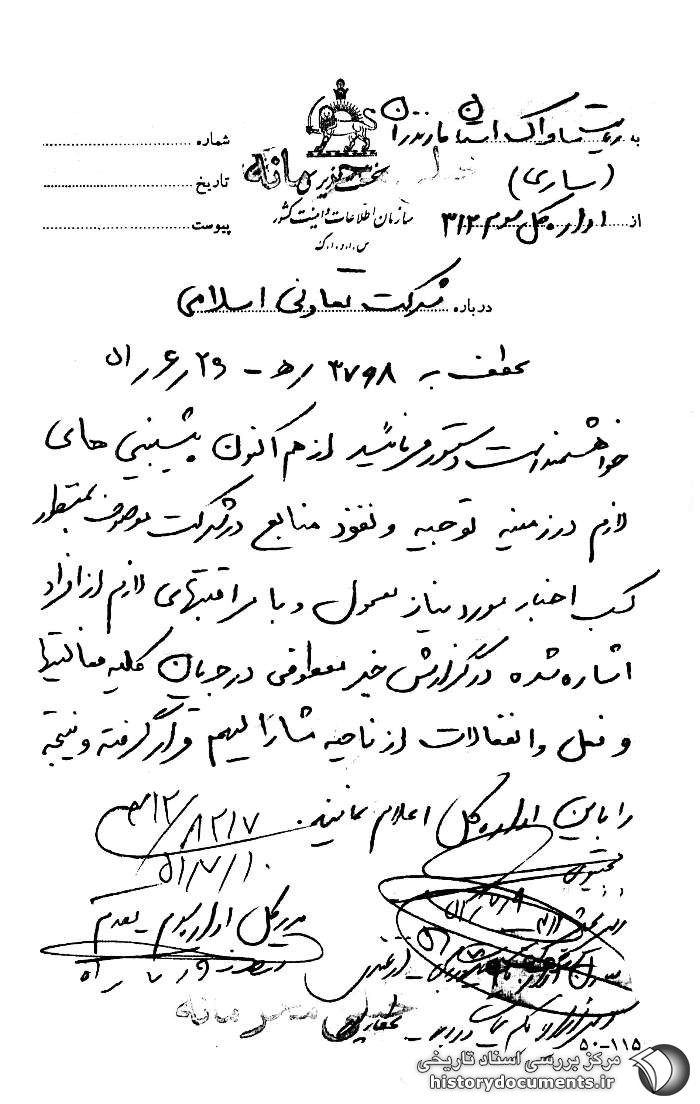 به ریاست ساواک استان مازندران
(ساری)
از اداره کل سوم ۳۱۲
شماره
تاریخ
پیوست
خیلی محرمانه
نخست وزیری
سازمان اطلاعات و امنیت کشور
س.ا.و.ا.ک
درباره شرکت تعاونی اسلامی
عطف به ۳۷۹۸/ه‍ - ۲۹/۶/۵۱
خواهشمند است دستور فرمائید از هم اکنون پیشبینی های
لازم در زمینه توجیه و نفوذ منابع در شرکت موصوف بمنظور
کسب اخبار مورد نیاز معمول و با مراقبتهای لازم از افراد
اشاره شده در گزارش خبر معطوفی در جریان کلیه فعالیتها
و فعل و انفعالات از ناحیه مشارالیهم قرار گرفته و نتیجه
را باین اداره کل اعلام نمایند.
۳۱۲/۸۲۱۷
۵۱/۷/۱۰
مدیرکل اداره سوم
۹/۷/۵۱
خیلی محرمانه
۵۰-۱۱۵
مرکز بررسی اسناد تاریخی
historydocuments.ir